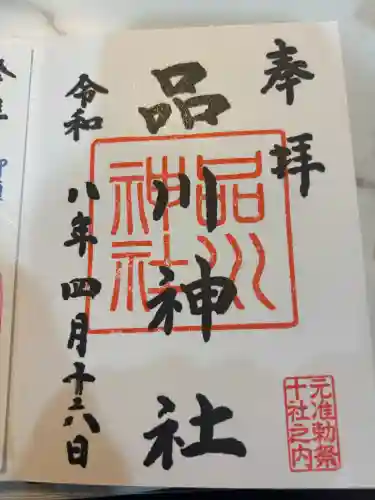 奉拝
品川神社
品川
神社
令和八年四月十六日
元准勅祭
十社之内